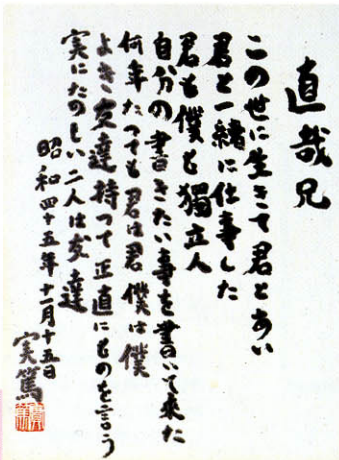 直哉兄
この世に生きて君とあい
君と一緒に仕事した
君も僕も獨立人
自分の書きたい事を書いて来た
何年たっても君は君僕は僕
よき友達持って正直にものを言う
実にたのしい二人は友達
昭和四十五年十一月十五日
実篤